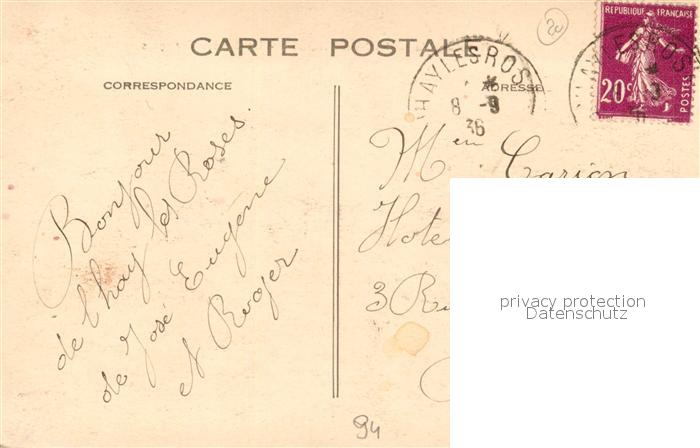 20
CARTE POSTALE
CORRESPONDANCE
ADRESSE
HAY LES ROS
8 - 9
36
REPUBLIQUE FRANÇAISE
20c
POSTES
Bonjour
de l'hay les Roses.
de José Eugene
et Roger
Men Carion
Hote
3 Ru
privacy protection
Datenschutz
94